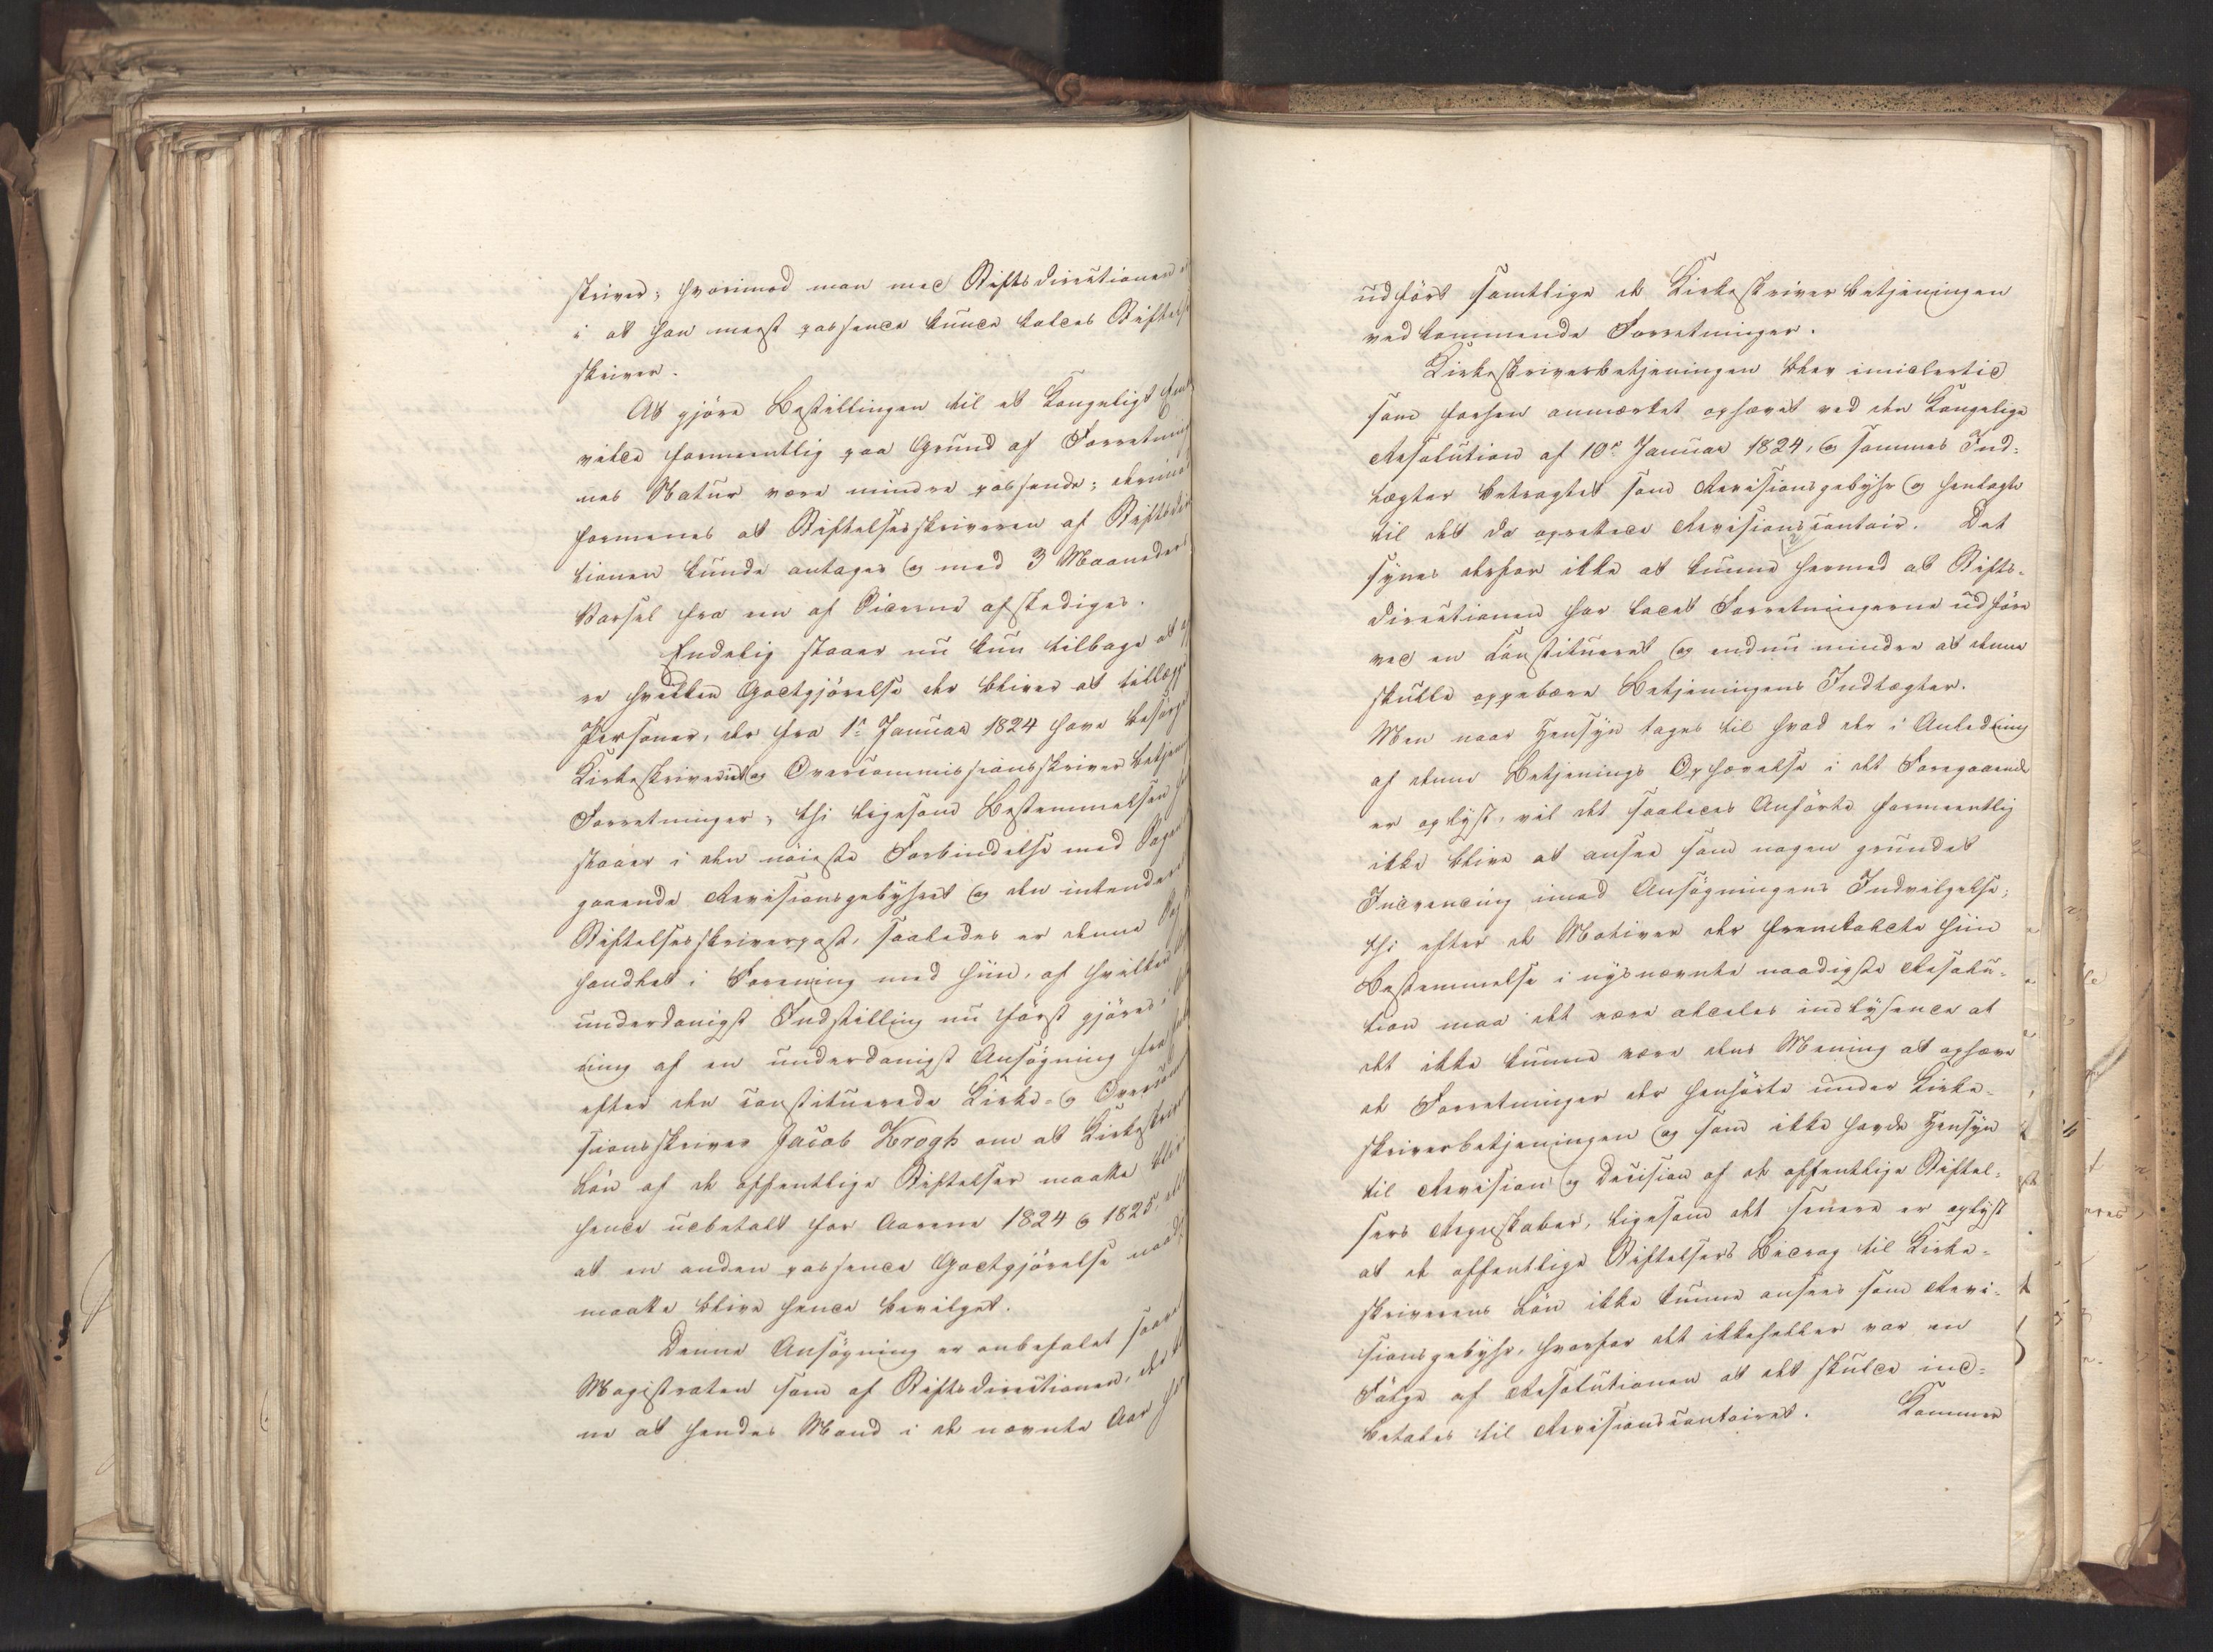 skriver; hvorimod man med Stiftsdirectionen er
i at han meest passende kunde kaldes Stiftelses
skriver.
At gjöre Bestillingen til et Kongeligt Embe
vilde formeentlig paa Grund af Forretning
nes Natur være mindre passende; derimod
formenes at Stiftelsesskriveren af Stiftsdir
tionen kunde antages og med 3 Maaneders
Varsel fra en af Siderne afskediges.
Endelig staaer nu kun tilbage at
re hvilken Godtgjörelse der bliver at tillægge
Personer, der fra 1e Januar 1824 have besörget
Kirkeskriveriet og Overcommissionsskriver betjen
Forretninger; thi ligesom Bestemmelsen
staaer i den nöieste Forbindelse med Sagen
gaaende Revisionsgebyhret og den intenderede
Stiftelsesskriverpost, saaledes er denne Sag
handlet i Forening med hiin, af hvilken
underdanigst Indstilling nu først gjöres i
ning af en underdanigst Ansögning fra
efter den constituerede Kirke- og Overcom
sionsskriver Jacob Krogh om at Kirkeskriver
Lön af de offentlige Stiftelser maatte blive
hende udbetalt for Aarene 1824 og 1825, eller
at en anden passende Godtgjörelse naad
maatte blive hende bevilget.
Denne Ansögning er anbefalet saavel
Magistraten som af Stiftsdirectionen, der
ne at hendes Mand i de nævnte Aar
udfört samtlige de Kirkeskriverbetjeningen
vedkommende Forretninger.
Kirkeskriverbetjeningen blev imidlertid
som forhen anmærket ophævet ved den Kongelige
Resolution af 10e Januar 1824, og sammes Ind-
tægter betragtet som Revisionsgebyhr og henlagte
til det da oprettede Revisionscontoir. Det
synes derfor ikke at kunne hermed at Stifts-
directionen har ladet Forretningerne udföre
ved en Constitueret og endnu mindre at denne
skulle oppebære Betjeningens Indtægter.
Men naar Hensyn tages til hvad der i Anledning
af denne Betjenings Ophævelse i det Foregaaende
er oplyst, vil det saaledes Anförte formeentlig
ikke blive at ansee som nogen grundet
Indvending imod Ansögningens Indvilgelse;
thi efter de Motiver der fremkaldte hiin
Bestemmelse i nysnævnte naadigste Resolu-
tion maa det være aldeles indlysende at
det ikke kunne være dens Mening at ophæve
de Forretninger der henhörte under Kirke-
skriverbetjeningen og som ikke havde Hensyn
til Revision og Decision af de offentlige Stiftel-
sers Regnskaber, ligesom det senere er oplyst
at de offentlige Stiftelsers Bidrag til Kirke-
skriverens Lön ikke kunne ansees som Revi-
sionsgebyhr, hvorfor det ikkeheller var en
Fölge af Resolutionen at det skulde ind-
betales til Revisionscontoiret. Kammer